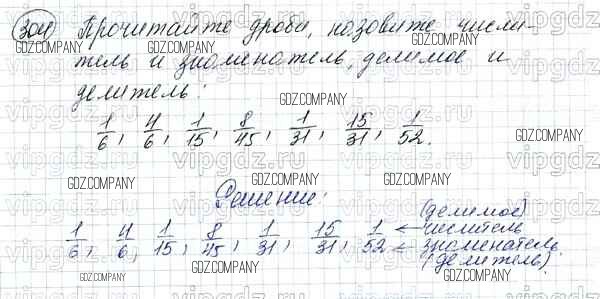 304 Прочитайте дроби, назовите числи-
тель и знаменатель, делимое и
делитель:
1/6, 4/6, 1/15, 8/45, 1/31, 15/31, 1/52.
Решение:
1/6, 4/6, 1/15, 8/45, 1/31, 15/31, 1/52 (делимое) ← числитель ← знаменатель (делитель)
GDZ.COMPANY
vipgdz.ru